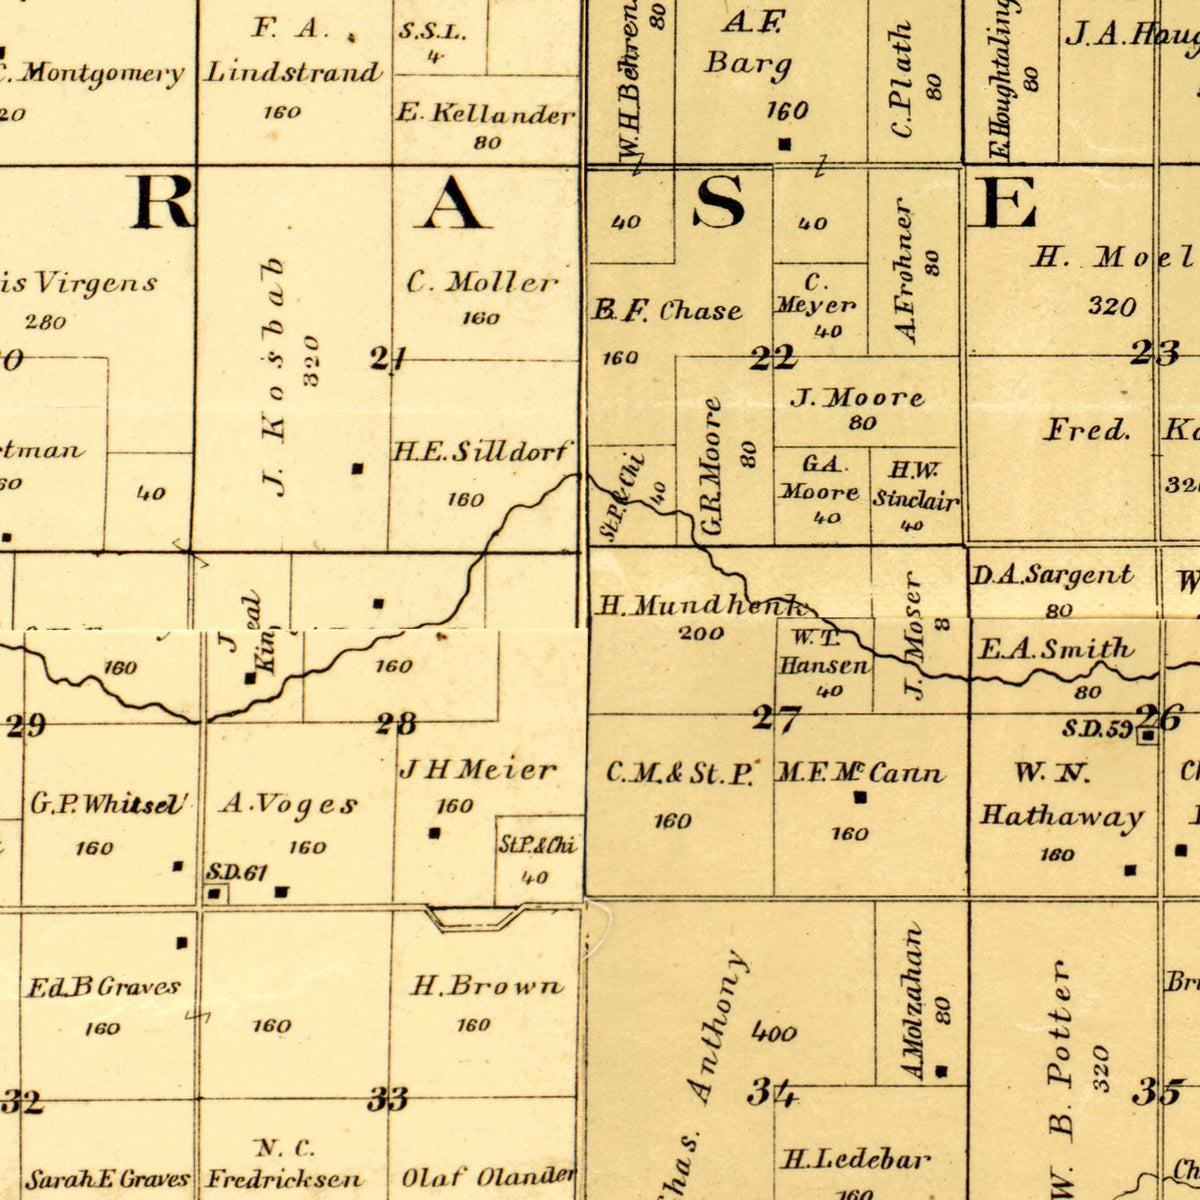 F. A.
Lindstrand
160
S.S.L.
4
E. Kellander
80
C. Montgomery
W.H.Behrens
80
A.F.
Barg
160
C. Plath
80
F. Houghtaling
80
J.A.
R A S E
is Virgens
280
J. Kosbab
320
C. Moller
160
21
H.E. Silldorf
160
40
40
40
B.F. Chase
160
C.
Meyer
40
A. Frohner
80
22
J. Moore
80
G.R. Moore
80
St.P. & Chi
40
G.A.
Moore
40
H.W.
Sinclair
40
H.
320
23
Fred.
rtman
H. Mundhenk
200
W.T.
Hansen
40
J. Moser
D.A. Sargent
80
E.A. Smith
80
160
160
29
28
27
26
S.D.59
G.P. Whitsel
160
A. Voges
160
S.D.61
J H Meier
160
St.P. & Chi
40
C.M. & St. P.
160
M.F. Mc Cann
160
W. N.
Hathaway
160
Ed. B Graves
160
160
H. Brown
160
Chas. Anthony
400
A. Molzahan
80
W. B. Potter
320
32
33
34
35
Sarah E Graves
N. C.
Fredricksen
Olaf Olander
H. Ledebar
160